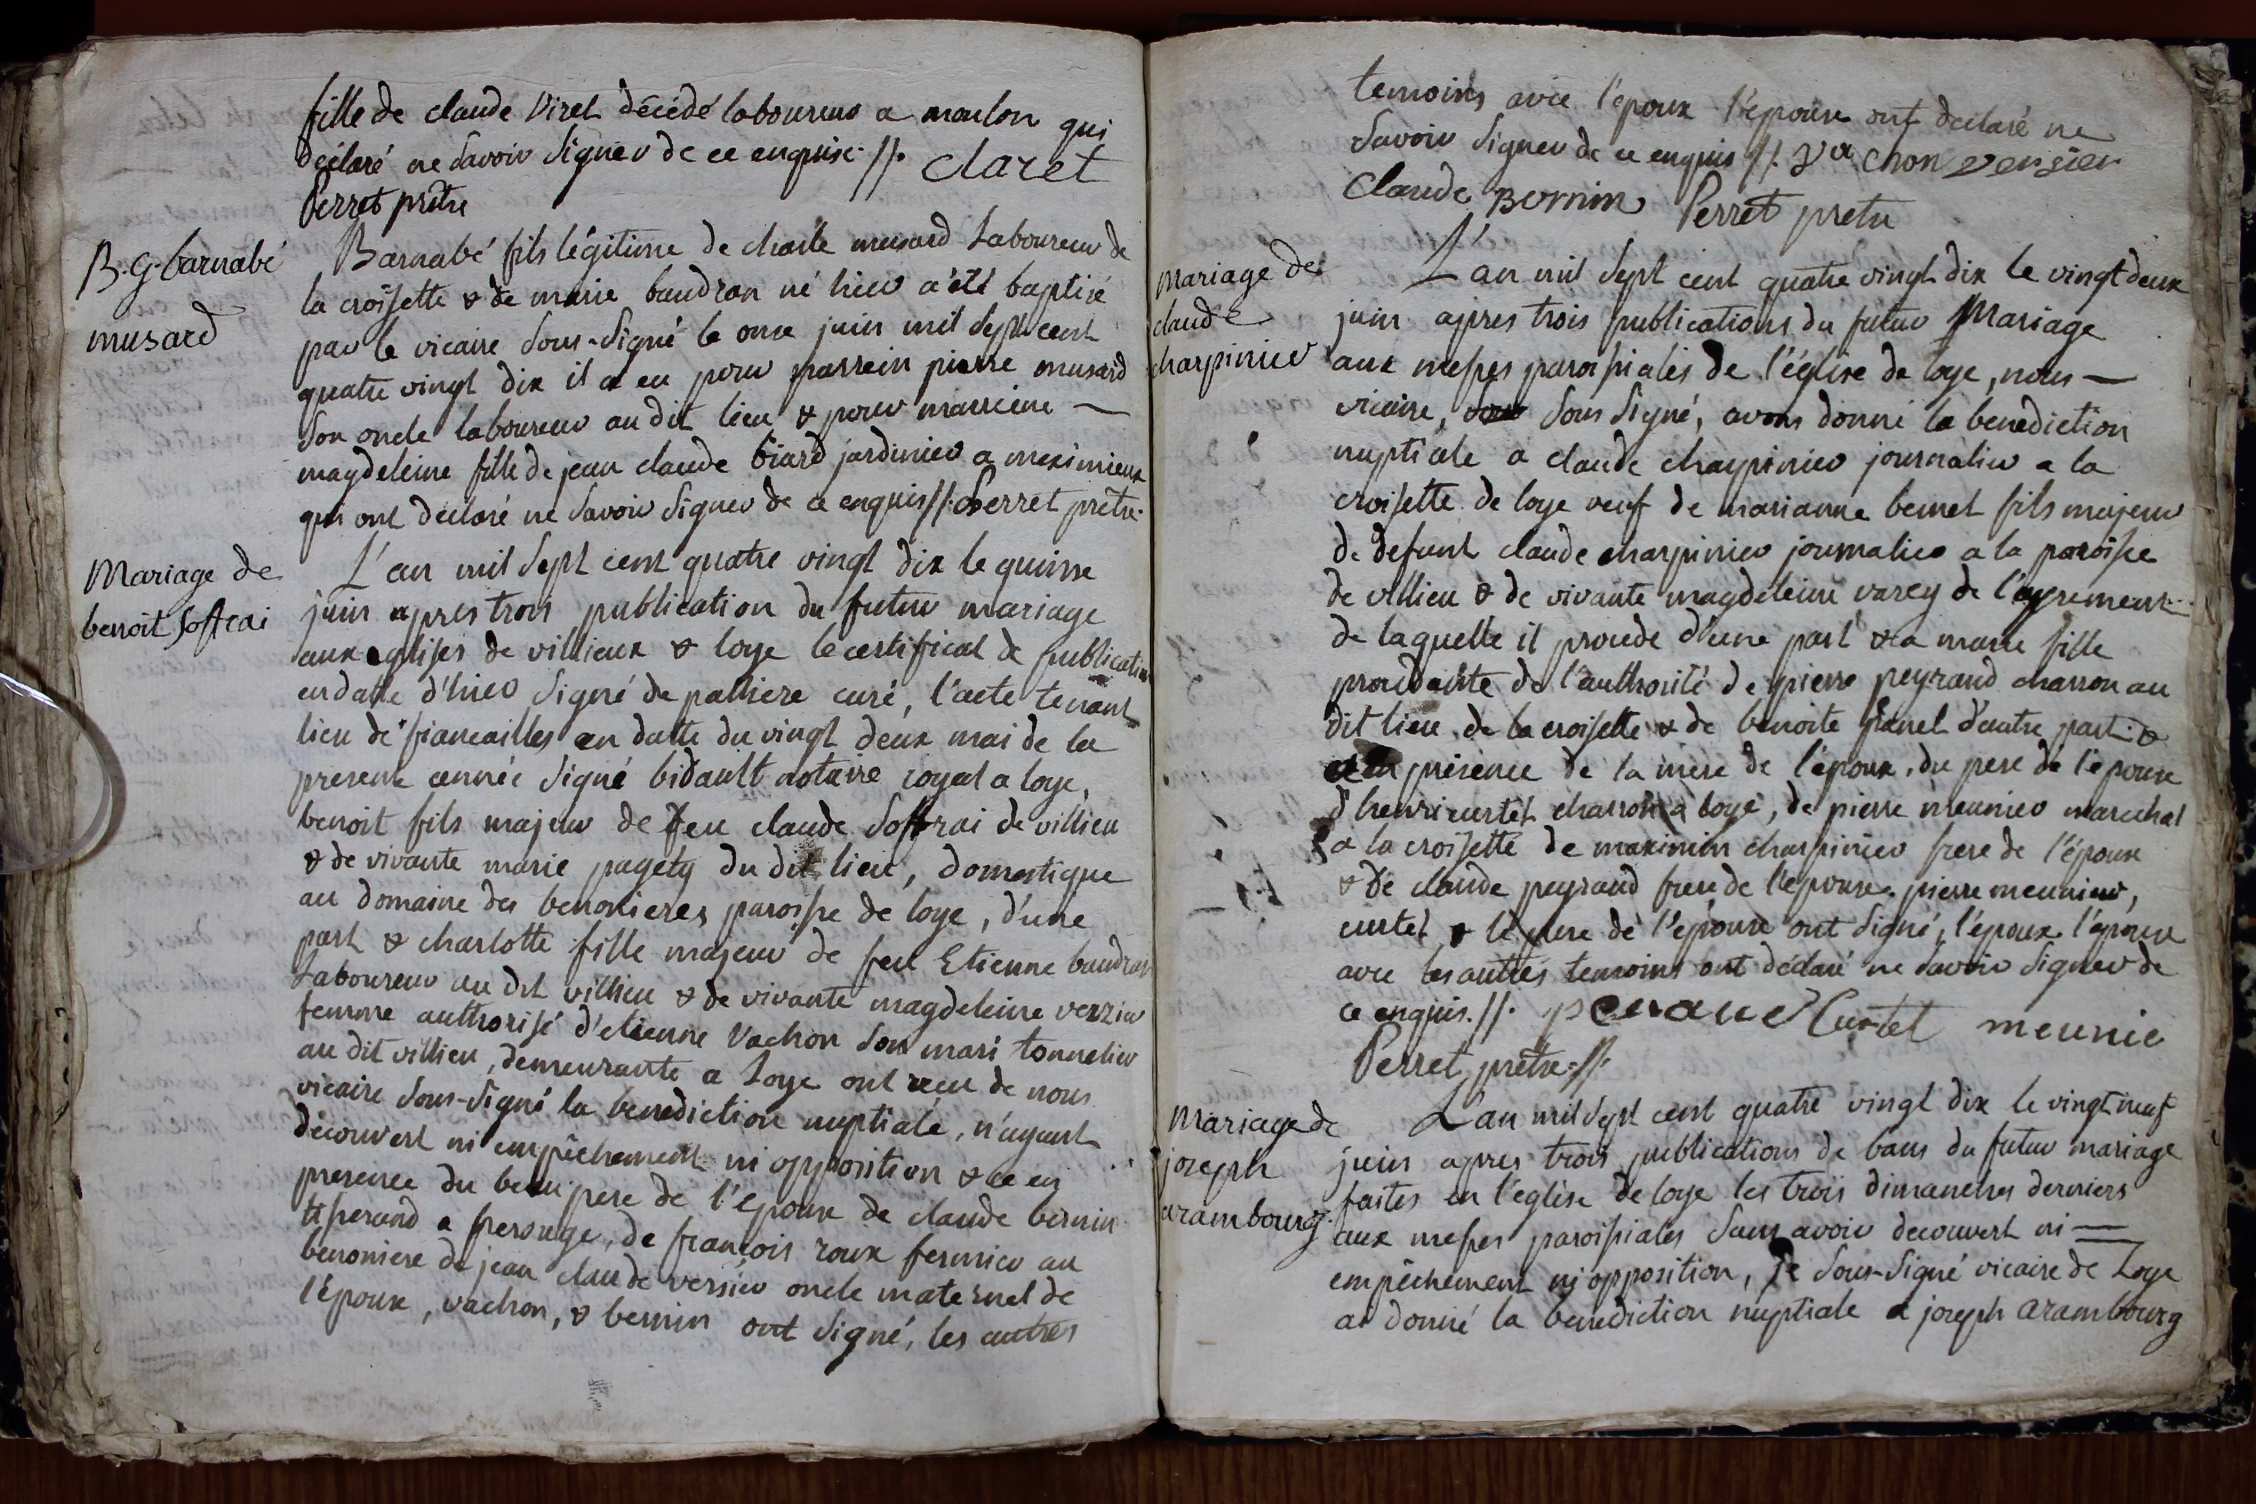 fille de claude Viret décédé laboureur a moulon qui
déclaré ne savoir signer de ce enquise. //. claret
Perret prêtre
B. G. barnabé
musard
Barnabé fils légitime de charle musard Laboureur de
la croisette & de marie baudran né hier a été baptisé
par le vicaire sous-signé le onze juin mil sept cent
quatre vingt dix il a eu pour parrein pierre musard
son oncle laboureur au dit lieu & pour marreine —
magdeleine fille de jean claude biard jardinier a meximieux
qui ont déclaré ne savoir signer de ce enquis //. Perret prêtre.
Mariage de
benoit soffrai
L'an mil sept cent quatre vingt dix le quinse
juin apres trois publication du futur mariage
aux eglises de villieux & loye le certificat de publication
en datte d'hier signé de palliere curé, l'acte tenant
lieu de fiancailles en datte du vingt deux mai de la
presente année signé bidault notaire royal a loye,
benoit fils majeur de feu claude soffrai de villieu
& de vivante marie pagety du dit lieu, domestique
au domaine des benonieres paroisse de loye, d'une
part & charlotte fille majeur de feu Etienne baudran
Laboureur au dit villieu & de vivante magdeleine verzier
femme authorisé d'etienne Vachon son mari tonnelier
au dit villieu, demeurante a Loye ont recu de nous
vicaire sous-signé la benediction nuptiale, n'ayant
découvert ni empêchement ni opposition & ce en
presence du beau pere de l'epouse de claude bernin
tisserand a , de françois roux fermier au
benoniere de jean claude versier oncle maternel de
l'Epouse, vachon, & bernin ont signé, les autres
temoins avec l'epoux l'epouse ont declaré ne
savoir signer de ce enquis //. Va chon versier
Claude Bernin Perret pretre
Mariage de
claude
charpinier
L'an mil sept cent quatre vingt dix le vingt deux
juin apres trois publications du futur Mariage
aux messes paroissiales de l'église de loye, nous —
vicaire, sous signé, avons donné la benediction
nuptiale a claude charpinier journalier a la
croisette de loye veuf de marianne bernet fils majeur
de defunt claude charpinier journalier a la paroisse
de villieu & de vivante magdeleine varey de l'agrement
de laquelle il procede d'une part & a marie fille
procedante de l'authorité de pierre peyraud charron au
dit lieu de la croisette & de benoite d'autre part &
en présence de la mère de l'époux, du pere de l'epouse
d'henri curtet charron a loye, de pierre meunier marechal
a la croisette de maximin charpinier frere de l'époux
& de claude peyraud frere de l'epouse. pierre meunier,
curtet & le pere de l'épouse ont signé, l'époux l'epouse
avec les autres temoins ont déclaré ne savoir signer de
ce enquis. //. Curtet meunie
Perret prêtre. //.
Mariage de
joseph
arambourg
L'an mil sept cent quatre vingt dix le vingt neuf
juin apres trois publications de bans du futur mariage
faites en l'eglise de loye les trois dimanches derniers
aux messes paroissiales sans avoir decouvert ni —
empêchement ni opposition, je sous-signé vicaire de Loye
ai donné la benediction nuptiale a joseph arambourg